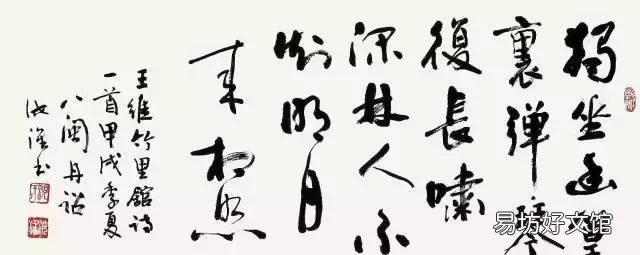 獨坐幽篁
裏彈琴
復長嘯
深林人不
知明月
来相照
王維竹里館詩
一首甲戌季夏
八闽丹詔
书
易坊好文馆